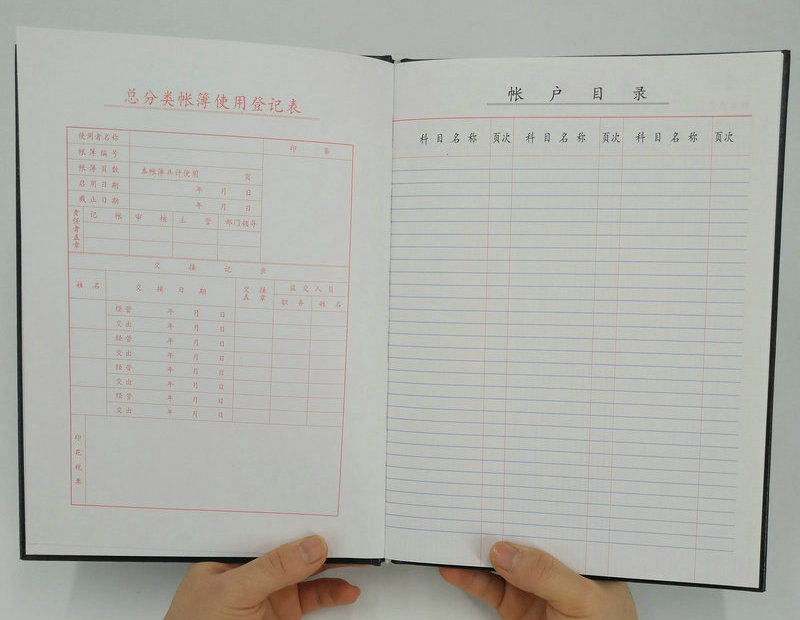 总分类帐簿使用登记表
使用者名称
印 鉴
帐簿编号
帐簿页数 本帐簿共计使用 页
启用日期 年 月 日
截止日期 年 月 日
责任者盖章 记 帐 审 核 主 管 部门领导
交 接 记 录
姓 名 交 接 日 期 交 接 盖 章 监 交 人 员
职 务 姓 名
经管 年 月 日
交出 年 月 日
经管 年 月 日
交出 年 月 日
经管 年 月 日
交出 年 月 日
经管 年 月 日
交出 年 月 日
印花税票
帐 户 目 录
科 目 名 称 页次 科 目 名 称 页次 科 目 名 称 页次